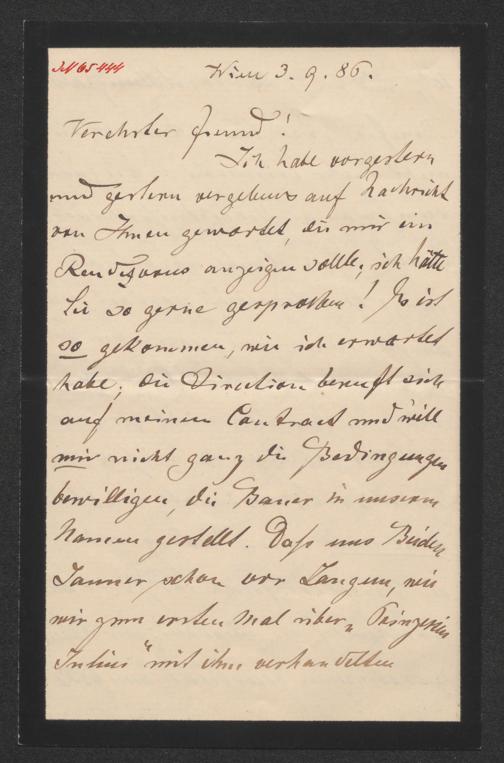 IN 65444
Wien 3. 9. 86.
Verehrter Freund!
Ich habe vorgestern
und gestern vergebens auf Nachricht
von Ihnen gewartet, die mir ein
Rendezvous anzeigen sollte; ich hätte
Sie so gerne gesprochen! Es ist
so gekommen, wie ich erwartet
habe; die Direction beruft sich
auf meinen Contract und will
mir nicht ganz die Bedingungen
bewilligen, die Bauer in unserem
Namen gestellt. Daß uns Beiden
Jauner schon vor Langem, wie
wir zum ersten Mal über
Julius" mit ihm verhandelten